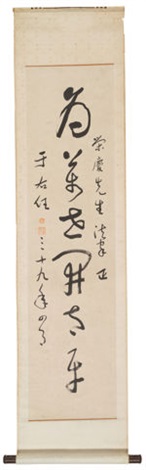 榮慶先生法家正
為萬世開太平
于右任
三十九年四月